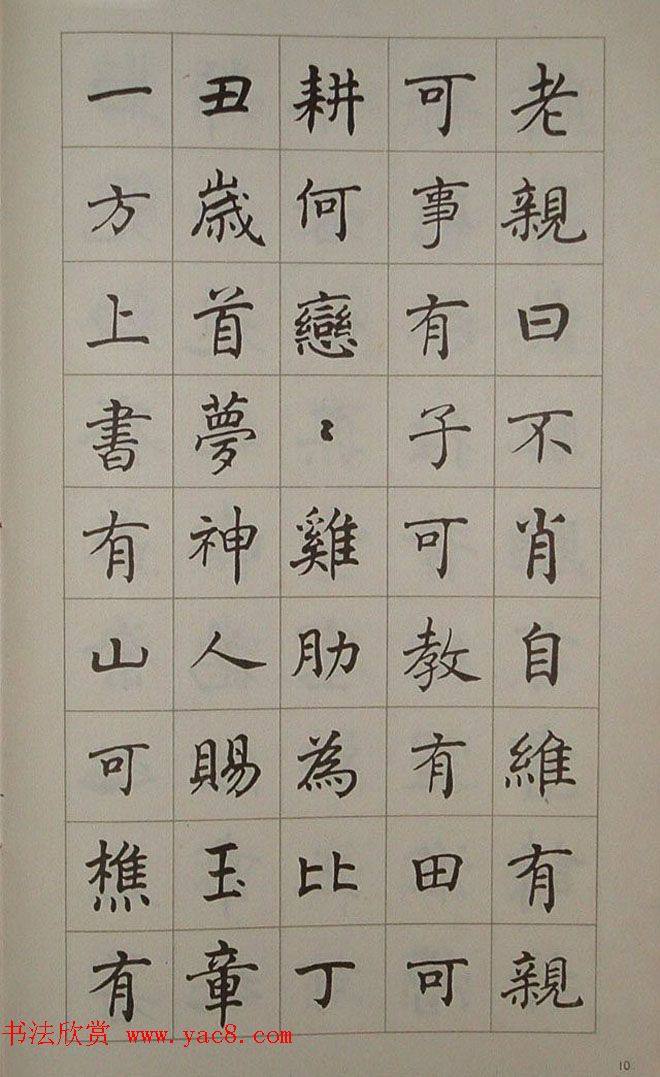 老親曰不肖自維有親
可事有子可教有田可
耕何戀〻雞肋為比丁
丑歲首夢神人賜玉章
一方上書有山可樵有
书法欣赏 www.yac8.com
10